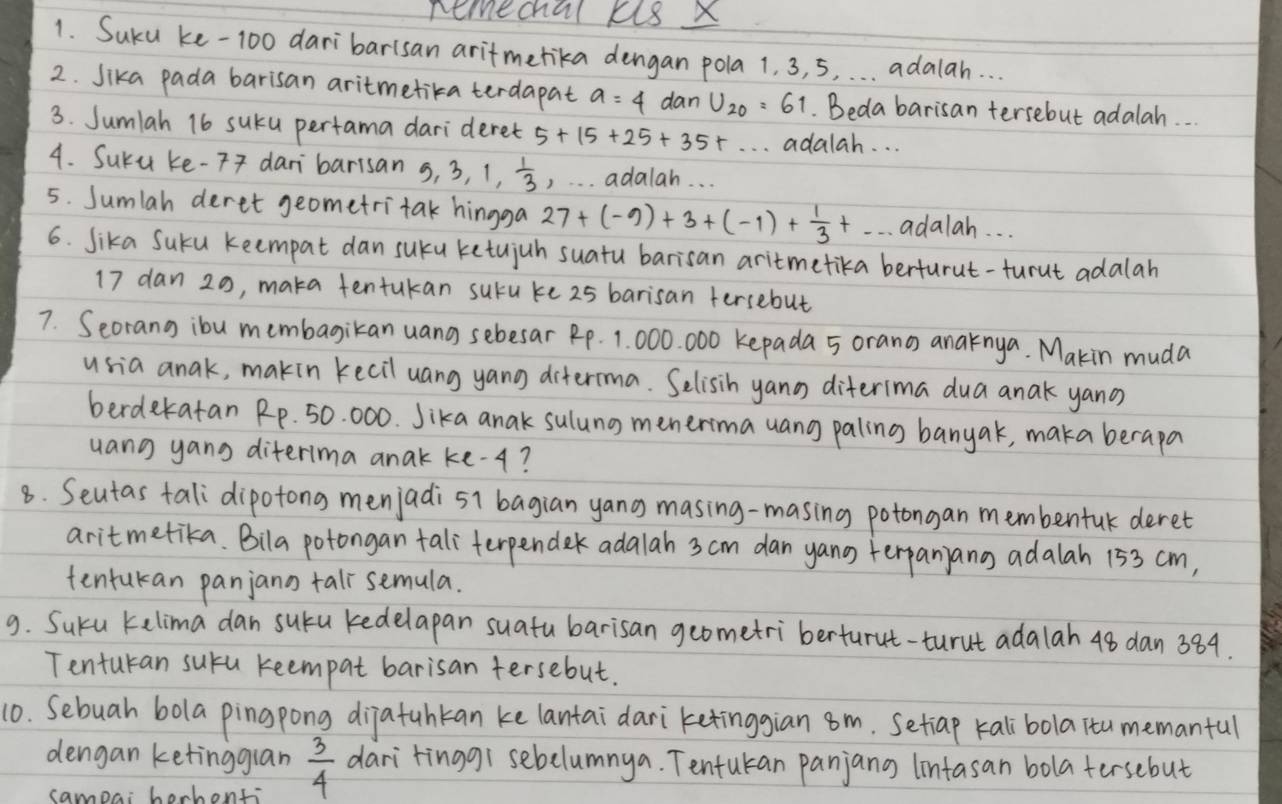 Remechal kls X
1. Suku ke-100 dari barisan aritmetika dengan pola 1, 3, 5, ... adalah ...
2. Jika pada barisan aritmetika terdapat a = 4 dan U₂₀ = 61. Beda barisan tersebut adalah ...
3. Jumlah 16 suku pertama dari deret 5 + 15 + 25 + 35 + ... adalah ...
4. Suku ke-77 dari barisan 9, 3, 1, 1/3, ... adalah ...
5. Jumlah deret geometri tak hingga 27 + (-9) + 3 + (-1) + 1/3 + ... adalah ...
6. Jika suku keempat dan suku ketujuh suatu barisan aritmetika berturut-turut adalah
17 dan 29, maka tentukan suku ke 25 barisan tersebut
7. Seorang ibu membagikan uang sebesar Rp. 1.000.000 kepada 5 orang anaknya. Makin muda
usia anak, makin kecil uang yang diterima. Selisih yang diterima dua anak yang
berdekatan Rp. 50.000. Jika anak sulung menerima uang paling banyak, maka berapa
uang yang diterima anak ke-4?
8. Seutas tali dipotong menjadi 51 bagian yang masing-masing potongan membentuk deret
aritmetika. Bila potongan tali terpendek adalah 3 cm dan yang terpanjang adalah 153 cm,
tentukan panjang tali semula.
9. Suku kelima dan suku kedelapan suatu barisan geometri berturut-turut adalah 48 dan 384.
Tentukan suku keempat barisan tersebut.
10. Sebuah bola pingpong dijatuhkan ke lantai dari ketinggian 8m. Setiap kali bola itu memantul
dengan ketinggian 3/4 dari tinggi sebelumnya. Tentukan panjang lintasan bola tersebut
sampai berhenti